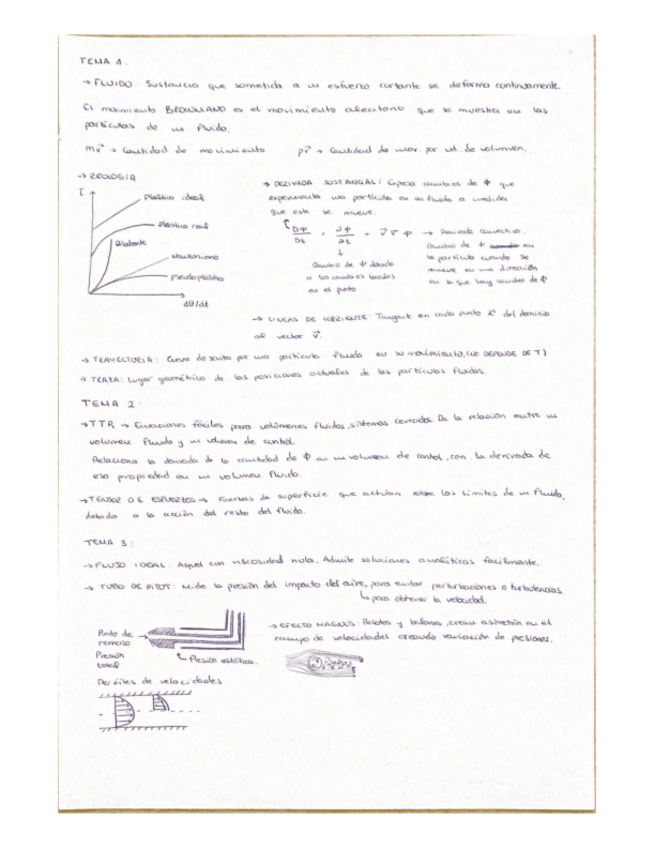 TEMA 1.
→ FLUIDO Sustancia que sometida a un esfuerzo cortante se deforma continuamente.
El movimiento BROWNIANO es el movimiento aleatorio que se muestra en las
partículas de un fluido.
mv⃗ → Cantidad de movimiento
ρv⃗ → Cantidad de mov. por ud. de volumen.
→ REOLOGÍA
τ
Plástico ideal
Plástico real
Dilatante
Newtoniano
Pseudoplástico
dθ/dt
→ DERIVADA SUSTANCIAL: Expresa cambios de Φ que
experimenta una partícula en un fluido a medida
que este se mueve.
DΦ/Dt = ∂Φ/∂t + v⃗ ∇ Φ → Derivada convectiva.
Cambio de Φ en
la partícula cuando se
mueve en una dirección
en la que hay cambio de Φ
↓
Cambio de Φ debido
a los cambios locales
en el punto
→ LINEAS DE CORRIENTE: Tangente en cada punto x⃗ del dominio
al vector v⃗.
→ TRAYECTORIA: Curva descrita por una partícula fluida en su movimiento. (NO DEPENDE DE T)
→ TRAZA: Lugar geométrico de las posiciones actuales de las partículas fluidas.
TEMA 2:
→ TTR → Ecuaciones fáciles para volúmenes fluidos, sistemas cerrados. Da la relación entre un
volumen fluido y un volumen de control.
Relaciona la derivada de la cantidad de Φ en un volumen de control, con la derivada de
esa propiedad en un volumen fluido.
→ TENSOR DE ESFUERZOS → Fuerzas de superficie que actúan sobre los límites de un fluido,
debido a la acción del resto del fluido.
TEMA 3:
→ FLUJO IDEAL: Aquel con viscosidad nula. Admite soluciones analíticas fácilmente.
→ TUBO DE PITOT: Mide la presión del impacto del aire, para evitar perturbaciones o turbulencias
↳ para obtener la velocidad.
Punto de
remanso
Presión
total
Presión estática.
→ EFECTO MAGNUS: Pelotas y balones, crean asimetría en el
campo de velocidades creando variación de presiones.
Perfiles de velocidades